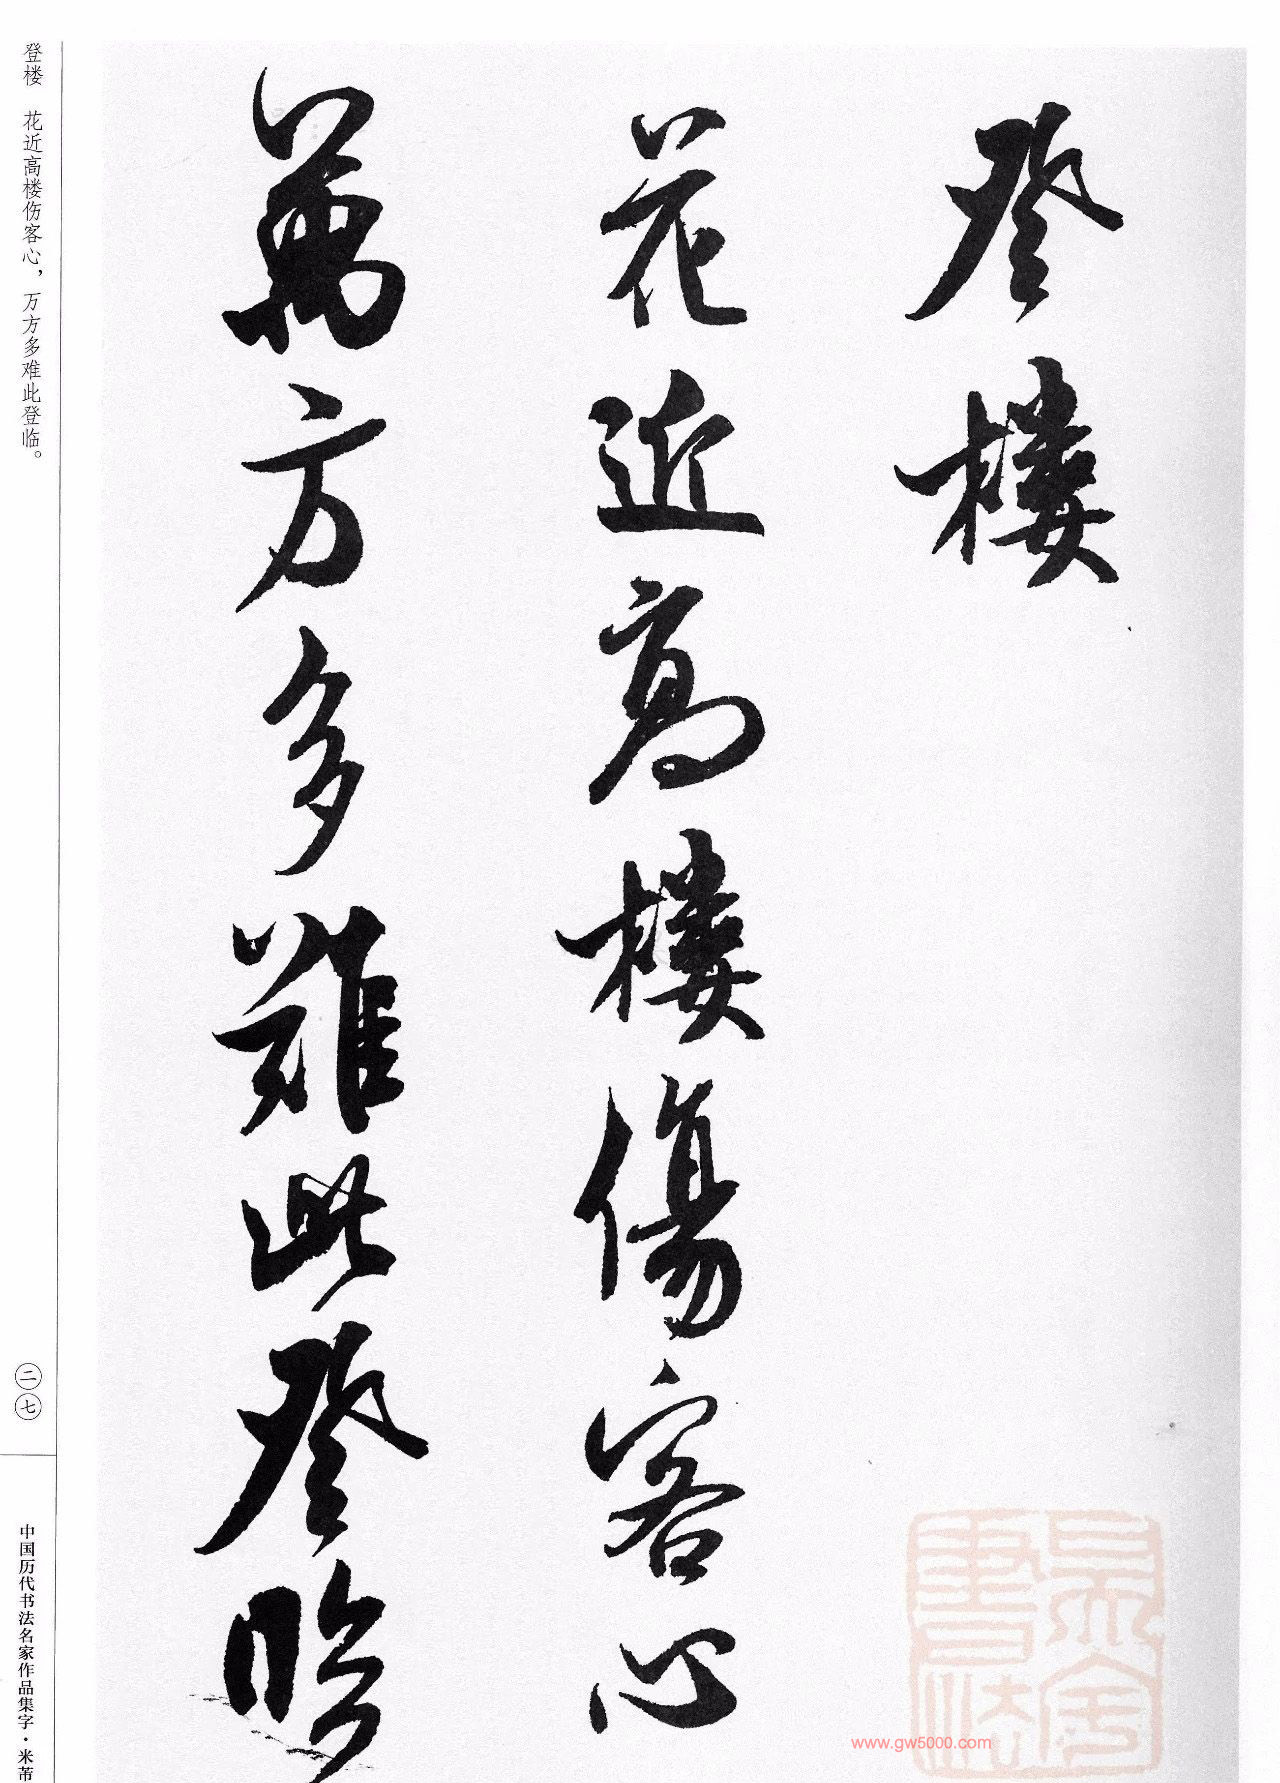 登樓
花近高樓傷客心
萬方多難此登臨
登楼　花近高楼伤客心，万方多难此登临。
二七
中国历代书法名家作品集字·米芾
www.gw5000.com